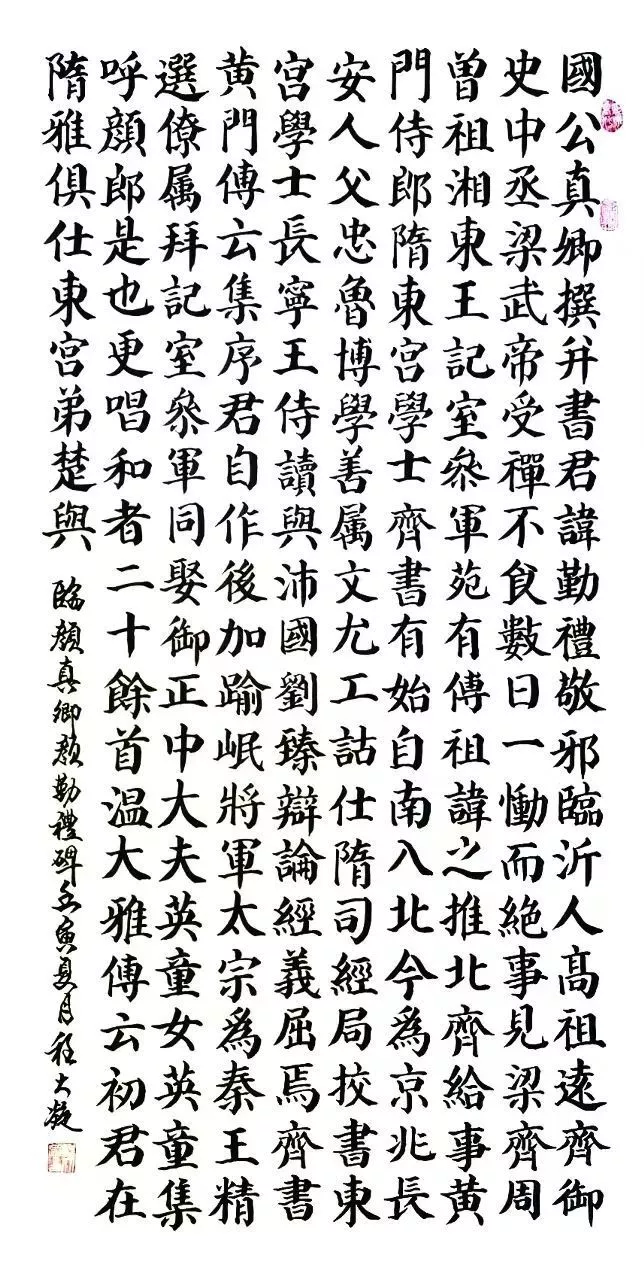 國公真卿撰并書君諱勤禮敬邪臨沂人髙祖逺齊御
史中丞梁武帝受禪不食數日一慟而絶事見梁齊周
曽祖湘東王記室叅軍苑有傳祖諱之推北齊給事黄
門侍郎隋東宫學士齊書有始自南入北今為京兆長
安人父忠魯博學善属文尤工詁仕隋司經局校書東
宫學士長寧王侍讀與沛國劉臻辯論經義屈焉齊書
黄門傳云集序君自作後加踰岷將軍太宗為秦王精
選僚属拜記室叅軍同娶御正中大夫英童女英童集
呼顔郎是也更唱和者二十餘首温大雅傳云初君在
隋雅俱仕東宫弟楚與
臨顔真卿顔勤禮碑夏月程大凝